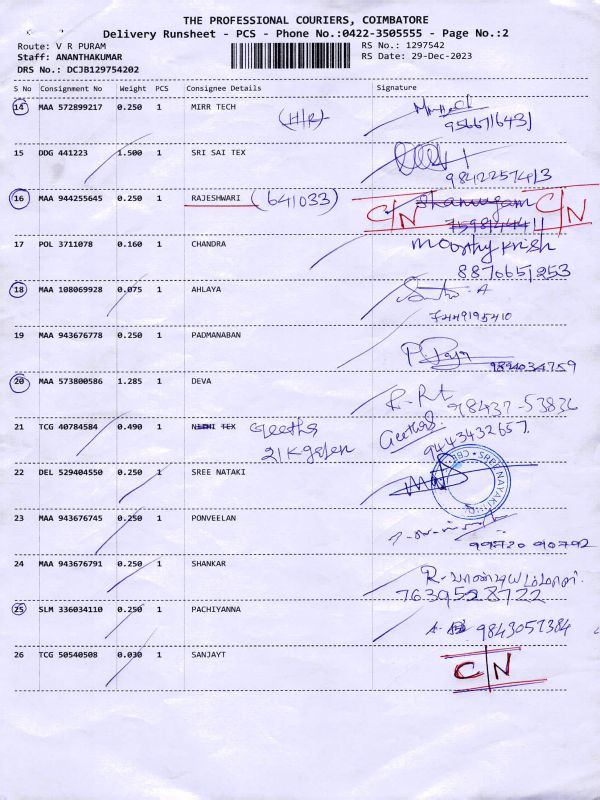 THE PROFESSIONAL COURIERS, COIMBATORE
Delivery Runsheet - PCS - Phone No.:0422-3505555 - Page No.:2
Route: V R PURAM
RS No.: 1297542
Staff: ANANTHAKUMAR
RS Date: 29-Dec-2023
DRS No.: DCJB129754202
S No Consignment No Weight PCS Consignee Details Signature
14 MAA 572899217 0.250 1 MIRR TECH
(H/R)
9566716431
15 DDG 441223 1.500 1 SRI SAI TEX
9842257413
16 MAA 944255645 0.250 1 RAJESHWARI (641033) C/N Shanmugam C/N
17 POL 3711078 0.160 1 CHANDRA Moorthy krish
8870651253
18 MAA 108069928 0.075 1 AHLAYA
7449195410
19 MAA 943676778 0.250 1 PADMANABAN
9894034759
20 MAA 573800586 1.285 1 DEVA
98437-53836
21 TCG 40784584 0.490 1 NIDHI TEX Geetha Geetha
9443432657.
22 DEL 529404550 0.250 1 SREE NATAKI
SREE NAYAKI
23 MAA 943676745 0.250 1 PONVEELAN
99720 90792
24 MAA 943676791 0.250 1 SHANKAR
7639528722
25 SLM 336034110 0.250 1 PACHIYANNA
9843057384
26 TCG 50540508 0.030 1 SANJAYT C/N